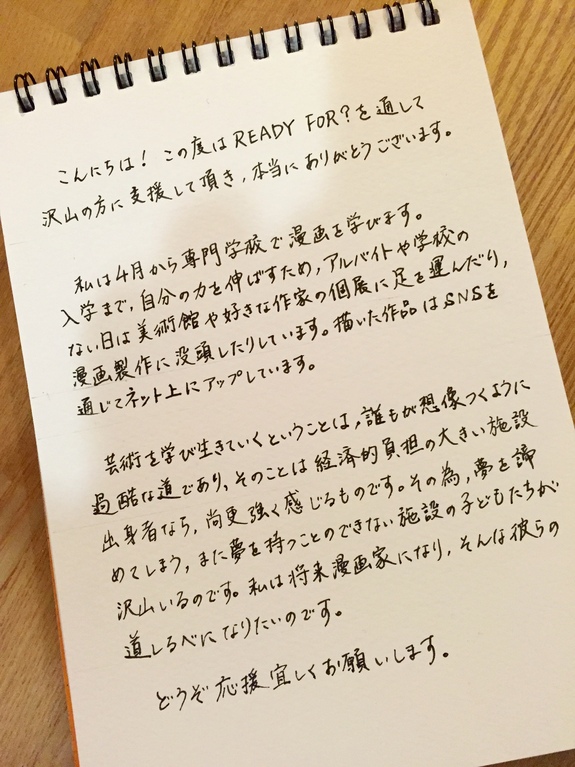 こんにちは! この度は READY FOR?を通して
沢山の方に支援して頂き,本当にありがとうございます。
私は4月から専門学校で漫画を学びます。
入学まで,自分の力を伸ばすため,アルバイトや学校の
ない日は美術館や好きな作家の個展に足を運んだり,
漫画製作に没頭したりしています。描いた作品はSNSを
通じてネット上にアップしています。
芸術を学び生きていくということは,誰もが想像つくように
過酷な道であり,そのことは経済的負担の大きい施設
出身者なら,尚更強く感じるものです。その為,夢を諦
めてしまう,また夢を持つことのできない施設の子どもたちが
沢山いるのです。私は将来漫画家になり,そんな彼らの
道しるべになりたいのです。
どうぞ応援宜しくお願いします。